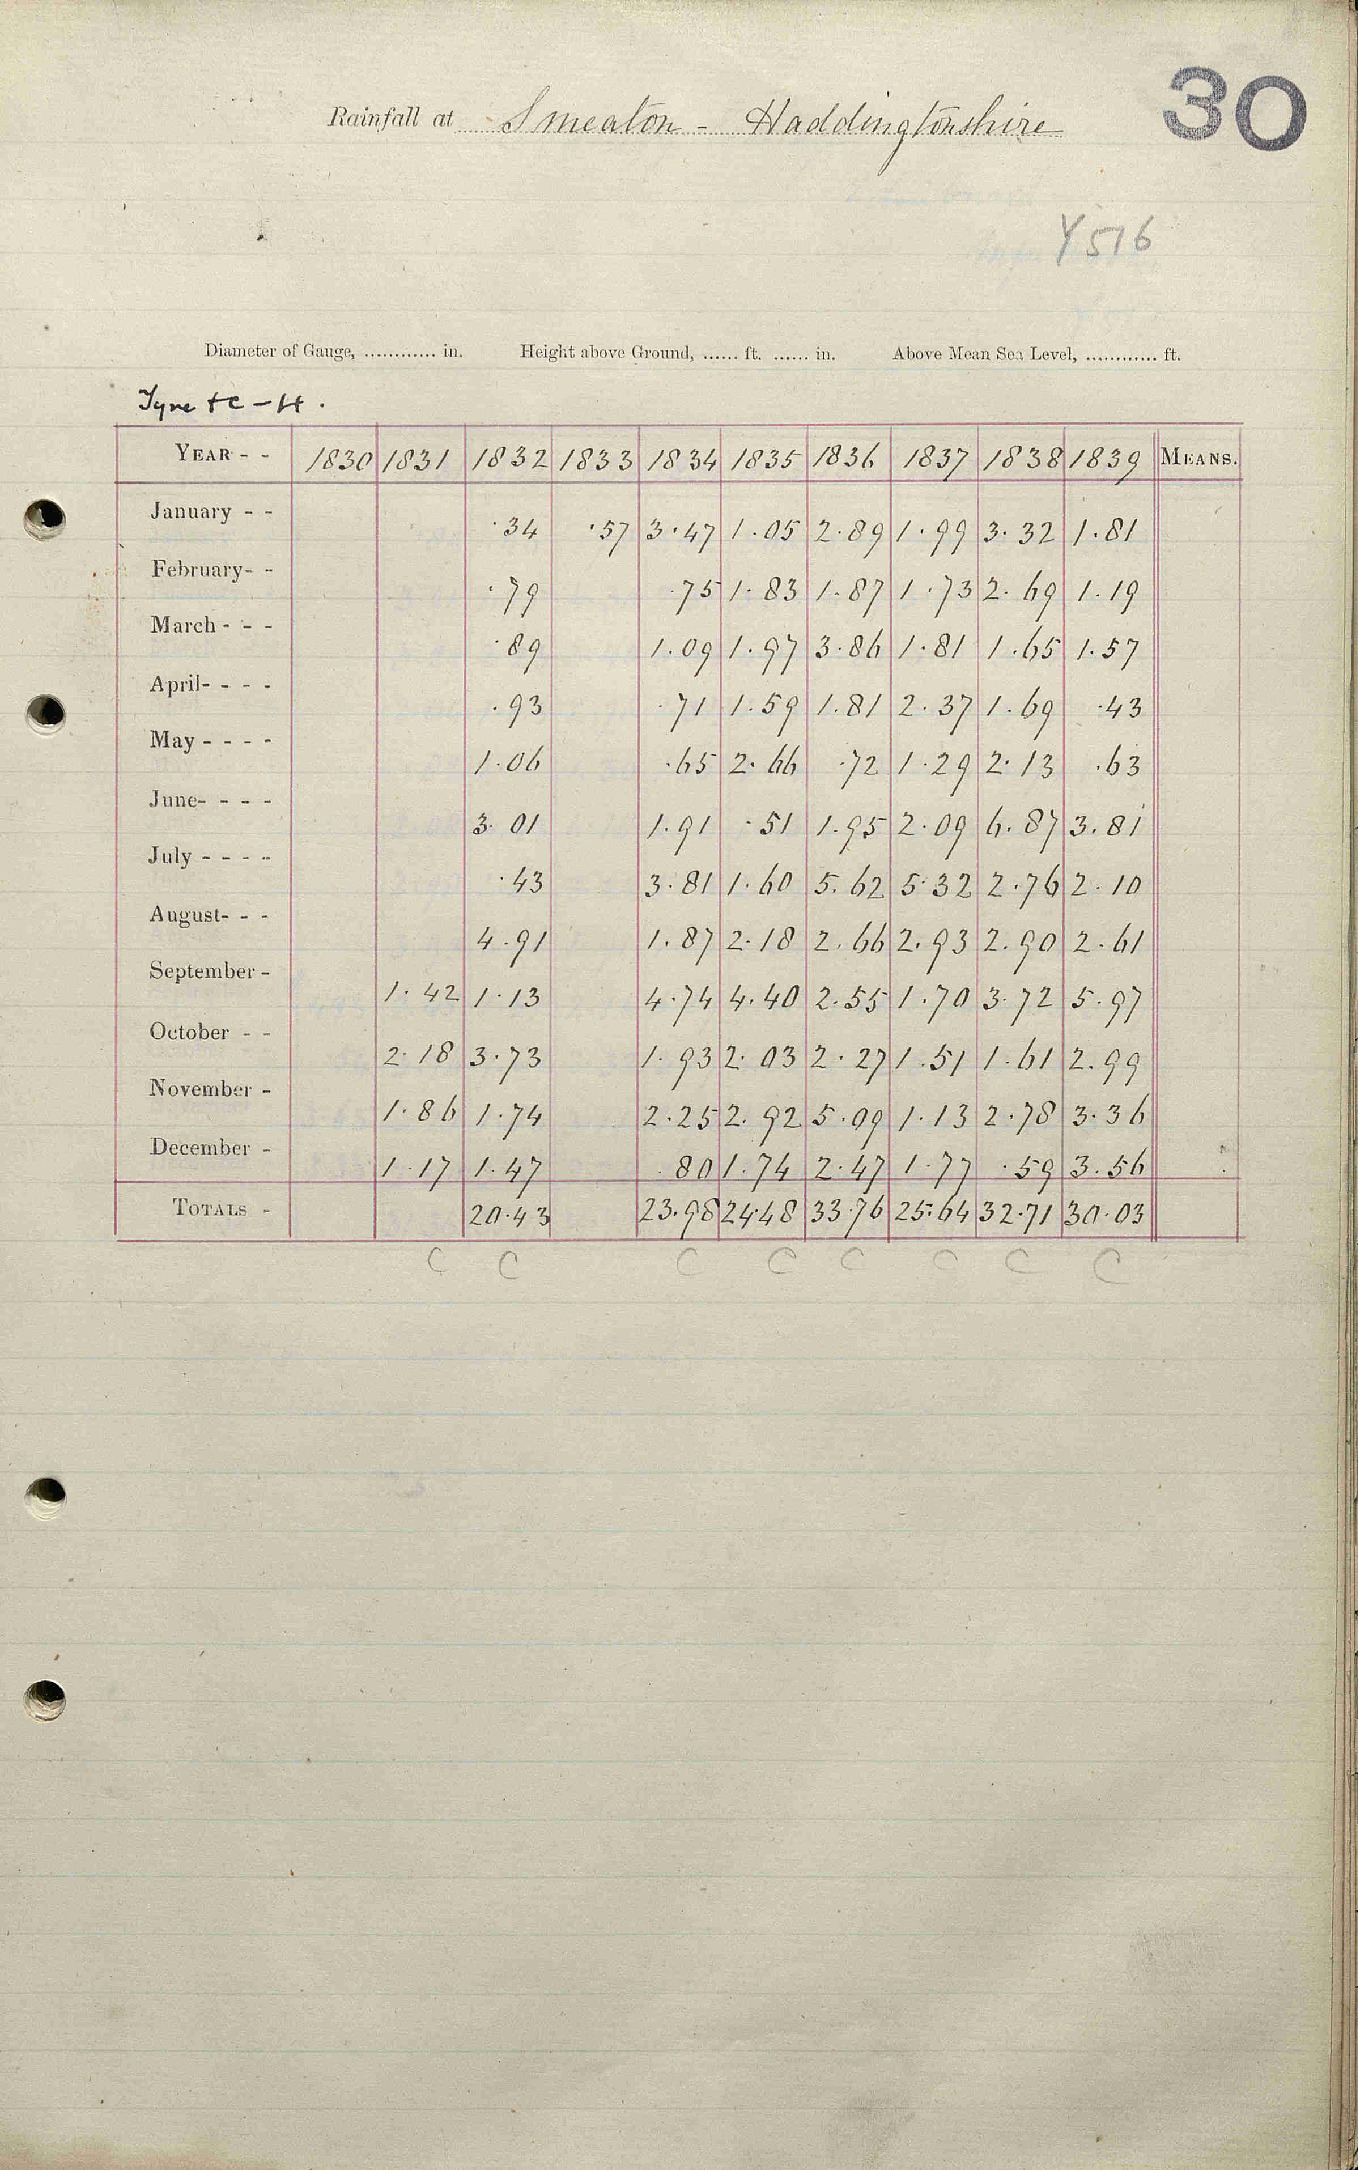 30
Rainfall at Smeaton - Haddingtonshire
Y516
Diameter of Gauge, ............ in. Height above Ground, ...... ft. ...... in. Above Mean Sea Level, ............ ft.
Tyne + C - H.
YEAR - - 1830 1831 1832 1833 1834 1835 1836 1837 1838 1839 MEANS.
January - - ·34 ·57 3·47 1·05 2·89 1·99 3·32 1·81
February- - ·79 ·75 1·83 1·87 1·73 2·69 1·19
March - - - ·89 1·09 1·97 3·86 1·81 1·65 1·57
April- - - - ·93 ·71 1·59 1·81 2·37 1·69 ·43
May - - - - 1·06 ·65 2·66 ·72 1·29 2·13 ·63
June- - - - 3·01 1·91 ·51 1·95 2·09 6·87 3·81
July - - - - ·43 3·81 1·60 5·62 5·32 2·76 2·10
August- - - 4·91 1·87 2·18 2·66 2·93 2·90 2·61
September - 1·42 1·13 4·74 4·40 2·55 1·70 3·72 5·97
October - - 2·18 3·73 1·93 2·03 2·27 1·51 1·61 2·99
November - 1·86 1·74 2·25 2·92 5·09 1·13 2·78 3·36
December - 1·17 1·47 ·80 1·74 2·47 1·77 ·59 3·56
TOTALS - 20·43 23·98 24·48 33·76 25·64 32·71 30·03
C C C C C C C C